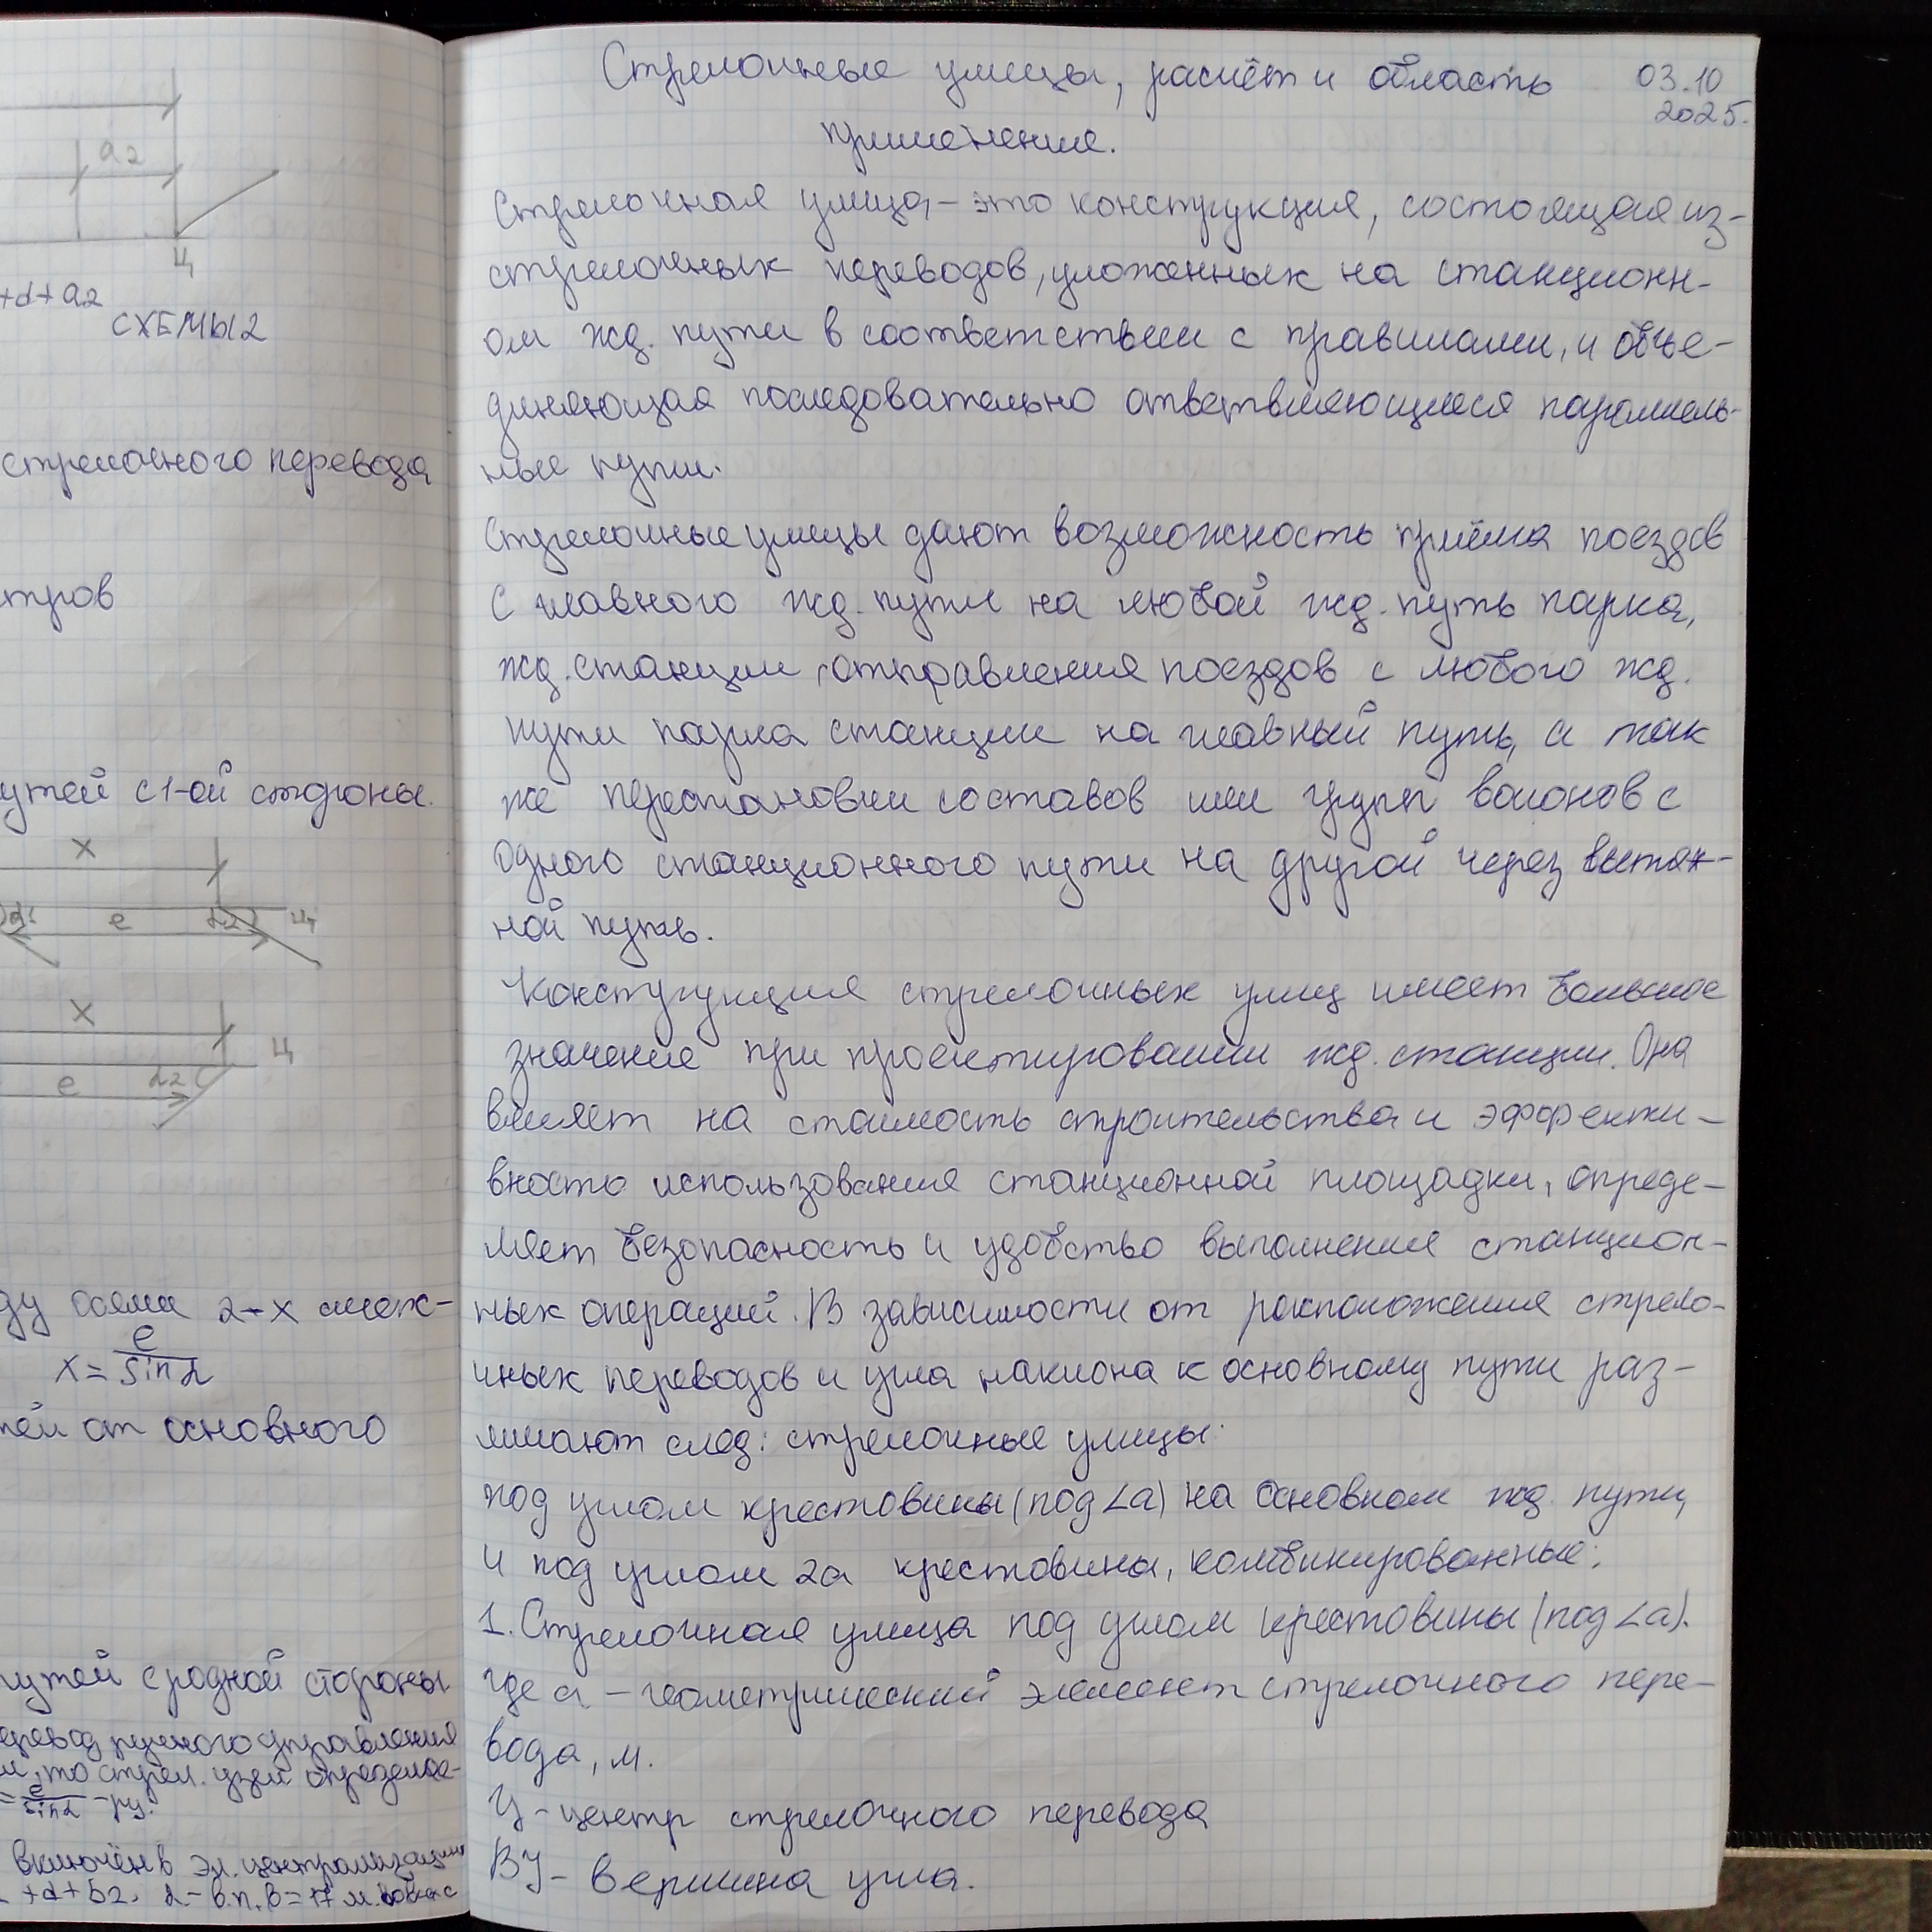 a2
Ц
+d+a2
СХЕМЫ2
стрелочного перевода
тров
утей с 1-ой стороны.
x
e
Ц
x
Ц
e
ду осями 2-х смеж-
x = e / sin α
тей от основного
путей с родной стороны
перевод ручного управления
то стрел. узел определяе-
= e / sin α
включён в эл. централизации
+d+b2.
Стрелочные улицы, расчёт и область
03.10
2025.
применение.
Стрелочная улица, - это конструкция, состоящая из-
стрелочных переводов, уложенных на станционн-
ом жд. пути в соответствии с правилами, и объе-
диняющая последовательно ответвляющиеся параллель-
ные пути.
Стрелочные улицы дают возможность приёма поездов
с главного жд. пути на любой жд. путь парка,
жд. станции, отправления поездов с любого жд.
пути парка станции на главный путь, а так
же перестановки составов или групп вагонов с
одного станционного пути на другой через вытяж-
ной путь.
Конструкция стрелочных улиц имеет большое
значение при проектировании жд. станции. Она
влияет на стоимость строительства и эффекти-
вность использования станционной площадки, опреде-
ляет безопасность и удобство выполнения станцион-
ных операций. В зависимости от расположения стрело-
чных переводов и угла наклона к основному пути раз-
личают след: стрелочные улицы:
под углом крестовины (под ∠а) на основном жд. пути,
и под углом 2а крестовина, комбинированные:
1. Стрелочная улица под углом крестовины (под ∠а).
где а - геометрический элемент стрелочного пере-
вода, м.
Ц - центр стрелочного перевода
ВУ - вершина угла.